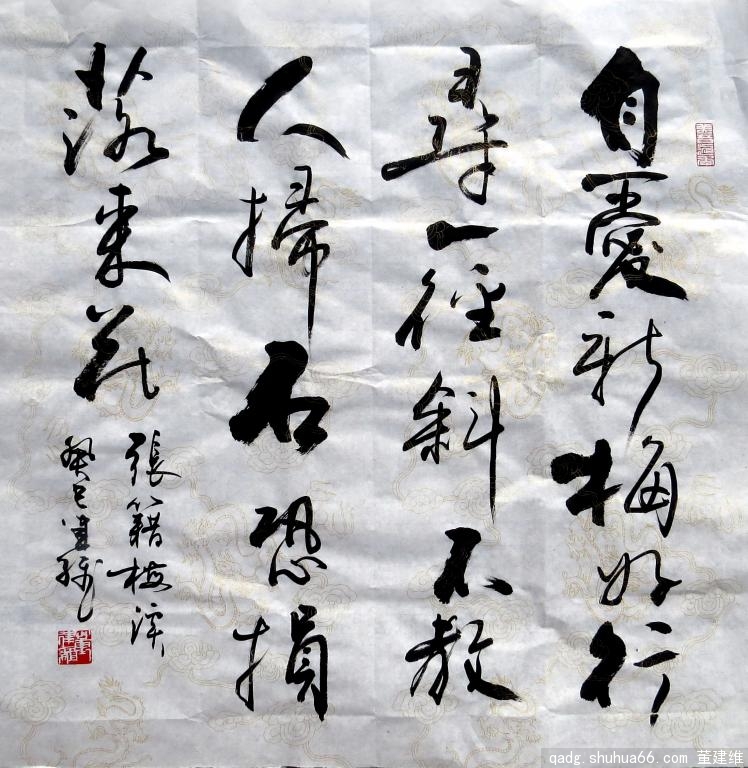 自愛新梅好行
尋一徑斜不教
人掃石恐損
落來花
張籍梅溪
癸巳建維
qadg.shuhua66.com 董建维